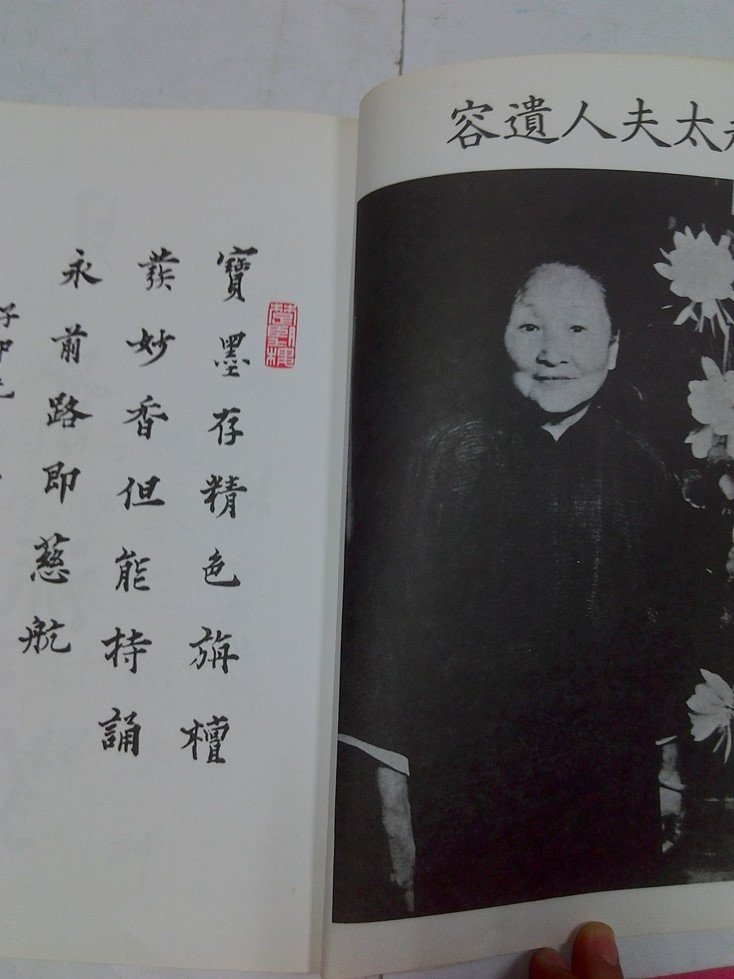 寶墨存精色旃檀
發妙香但能持誦
永前路即慈航
太夫人遺容